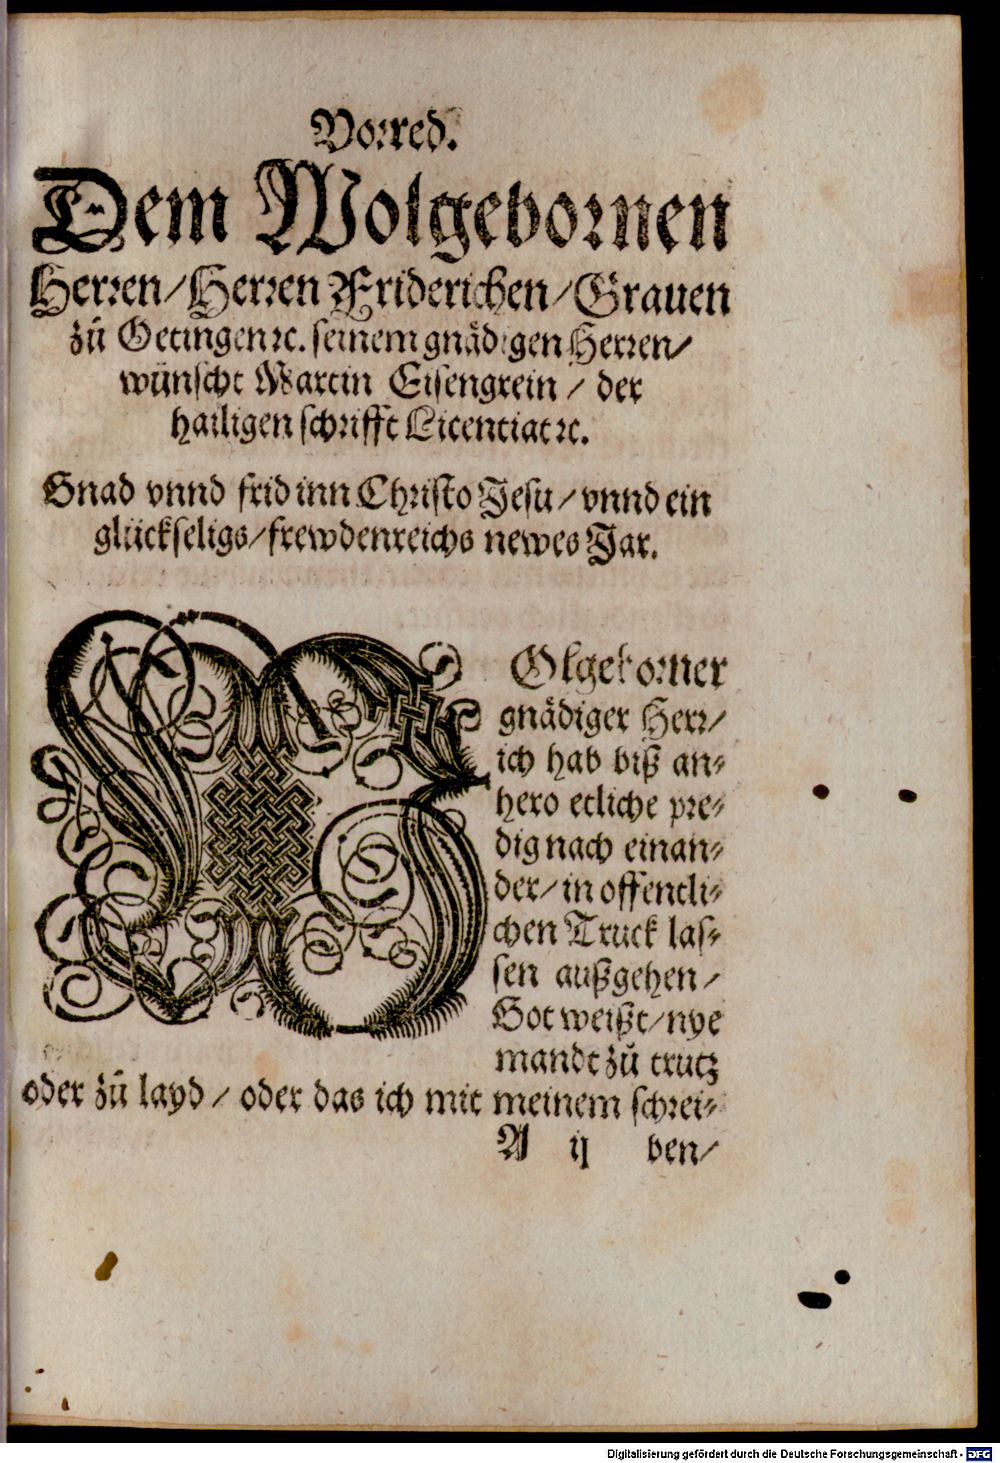 Vorred.
Dem Wolgebornen
Herren/Herren Friderichen/Grauen
zů Oetingen ꝛc. seinem gnädigen Herren/
wünscht Martin Eisengrein / der
hailigen schrifft Licentiat ꝛc.
Gnad vnnd frid inn Christo Jesu/ vnnd ein
glückseligs/frewdenreichs newes Jar.
WOlgeborner
gnädiger Herr/
ich hab biß an-
hero etliche pre-
dig nach einan-
der/ in offentli-
chen Truck las-
sen außgehen/
Got weißt/nye
mandt zů trutz
oder zů layd / oder das ich mit meinem schrei-
A ij ben/
Digitalisierung gefördert durch die Deutsche Forschungsgemeinschaft - DFG